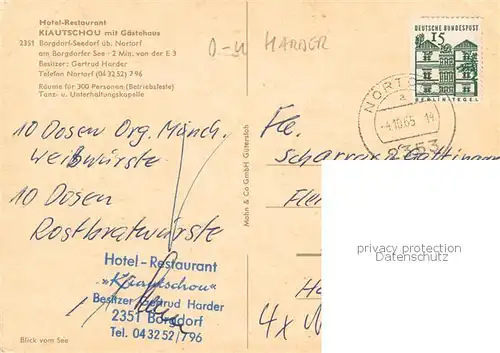 Hotel-Restaurant
KIAUTSCHOU mit Gästehaus
2351 Borgdorf-Seedorf üb. Nortorf
am Borgdorfer See · 2 Min. von der E 3
Besitzer: Gertrud Harder
Telefon Nortorf (04 32 52) 7 96
Räume für 300 Personen (Betriebsfeste)
Tanz- u. Unterhaltungskapelle
HARDER
DEUTSCHE BUNDESPOST
15
BERLIN/TEGEL
NORTO
a
-4.10.65 14
2353
10 Dosen Org. Münch.
Weißwürste
10 Dosen
Rostbratwürste
Hotel-Restaurant
"Kiautschou"
Besitzer Gertrud Harder
2351 Borgdorf
Tel. 04 32 52 / 796
Blick vom See
Mohn & Co GmbH Gütersloh
Fa.
4x
privacy protection
Datenschutz